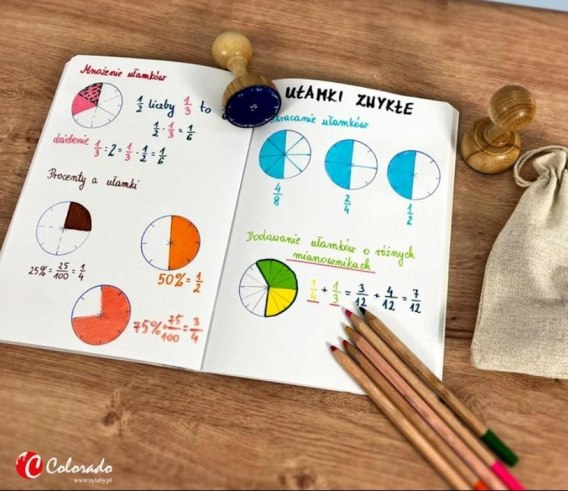 Mnożenie ułamków
1/2 liczby 1/3 to
1/2 · 1/3 = 1/6
dzielenie 1/3 : 2 = 1/3 · 1/2 = 1/6
Procenty a ułamki
25% = 25/100 = 1/4
50% = 1/2
75% = 75/100 = 3/4
UŁAMKI ZWYKŁE
skracanie ułamków
4/8
2/4
1/2
Dodawanie ułamków o różnych
mianownikach
1/4 + 1/3 = 3/12 + 4/12 = 7/12
Colorado
www.xyluby.pl